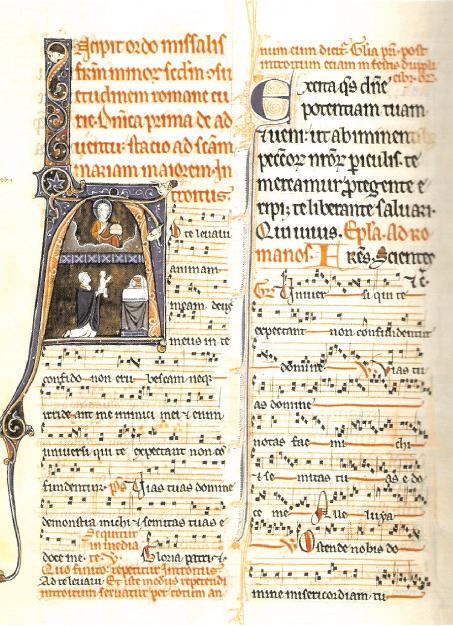 Incipit ordo missalis
frm minor sedm ɔsu
etudinem romane cu
rie. Dnica prima de ad
uentu. stacio ad scam
mariam maiorem. In
troitus.
Ad te leuaui
animam
meam. deus
meus in te
confido non eru bescam neqꝫ
irrideant me inimici mei & enim
uniuersi qui te expectant non cō
fundentur. ps Uias tuas domine
demonstra michi & semitas tuas e
Sequitur
in media
doce me. te V. Gloria patri &
Quo finito. repetitur Introitus
Ad te leuaui. Et iste modus repetendi
introitum seruatur per totum an
num cum dicit. Glia pri. post
introitum etiam in festis dupli
cibꝫ. or.
Excita qs dne
potentiam tuam
& ueni. ut ab iminen
peccor nror piculis. te
mereamur ptegente e
ripi. te liberante saluari.
Qui uiuis. Epla. ad ro
manos. Fres. Scientes
Gr Uniuer si qui te
expectant non confundentur
domine V. Uias tu
as domine
notas fac mi chi
& se mitas tu as e do
ce me Alle luya.
V. Ostende nobis do
mine misericordiam tu